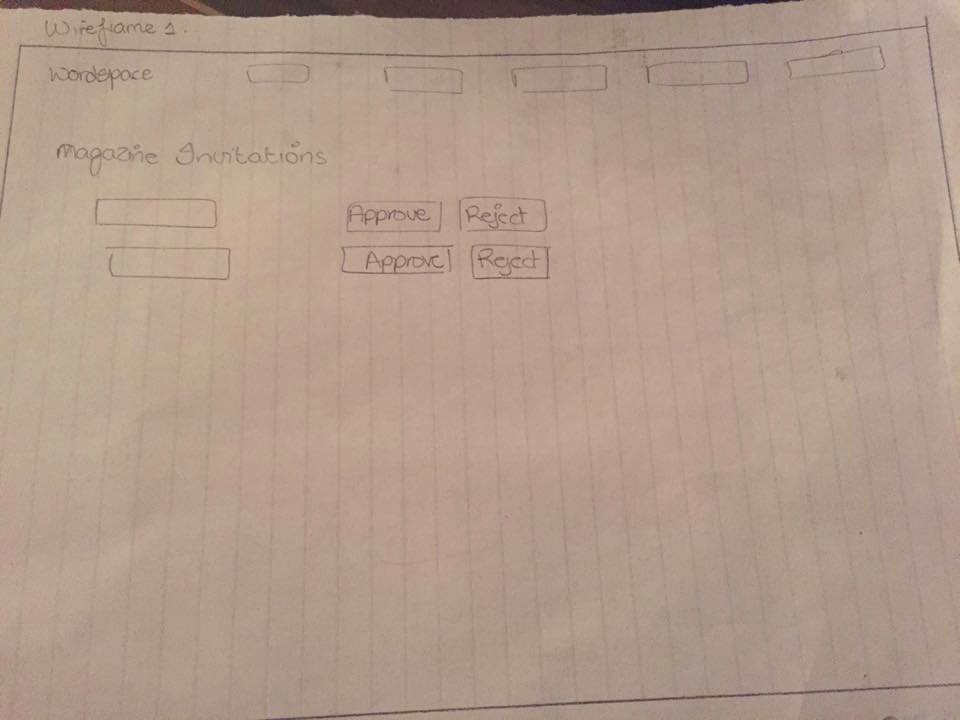 Wireframe 1.
Wordspace
Magazine Invitations
Approve Reject
Approve Reject